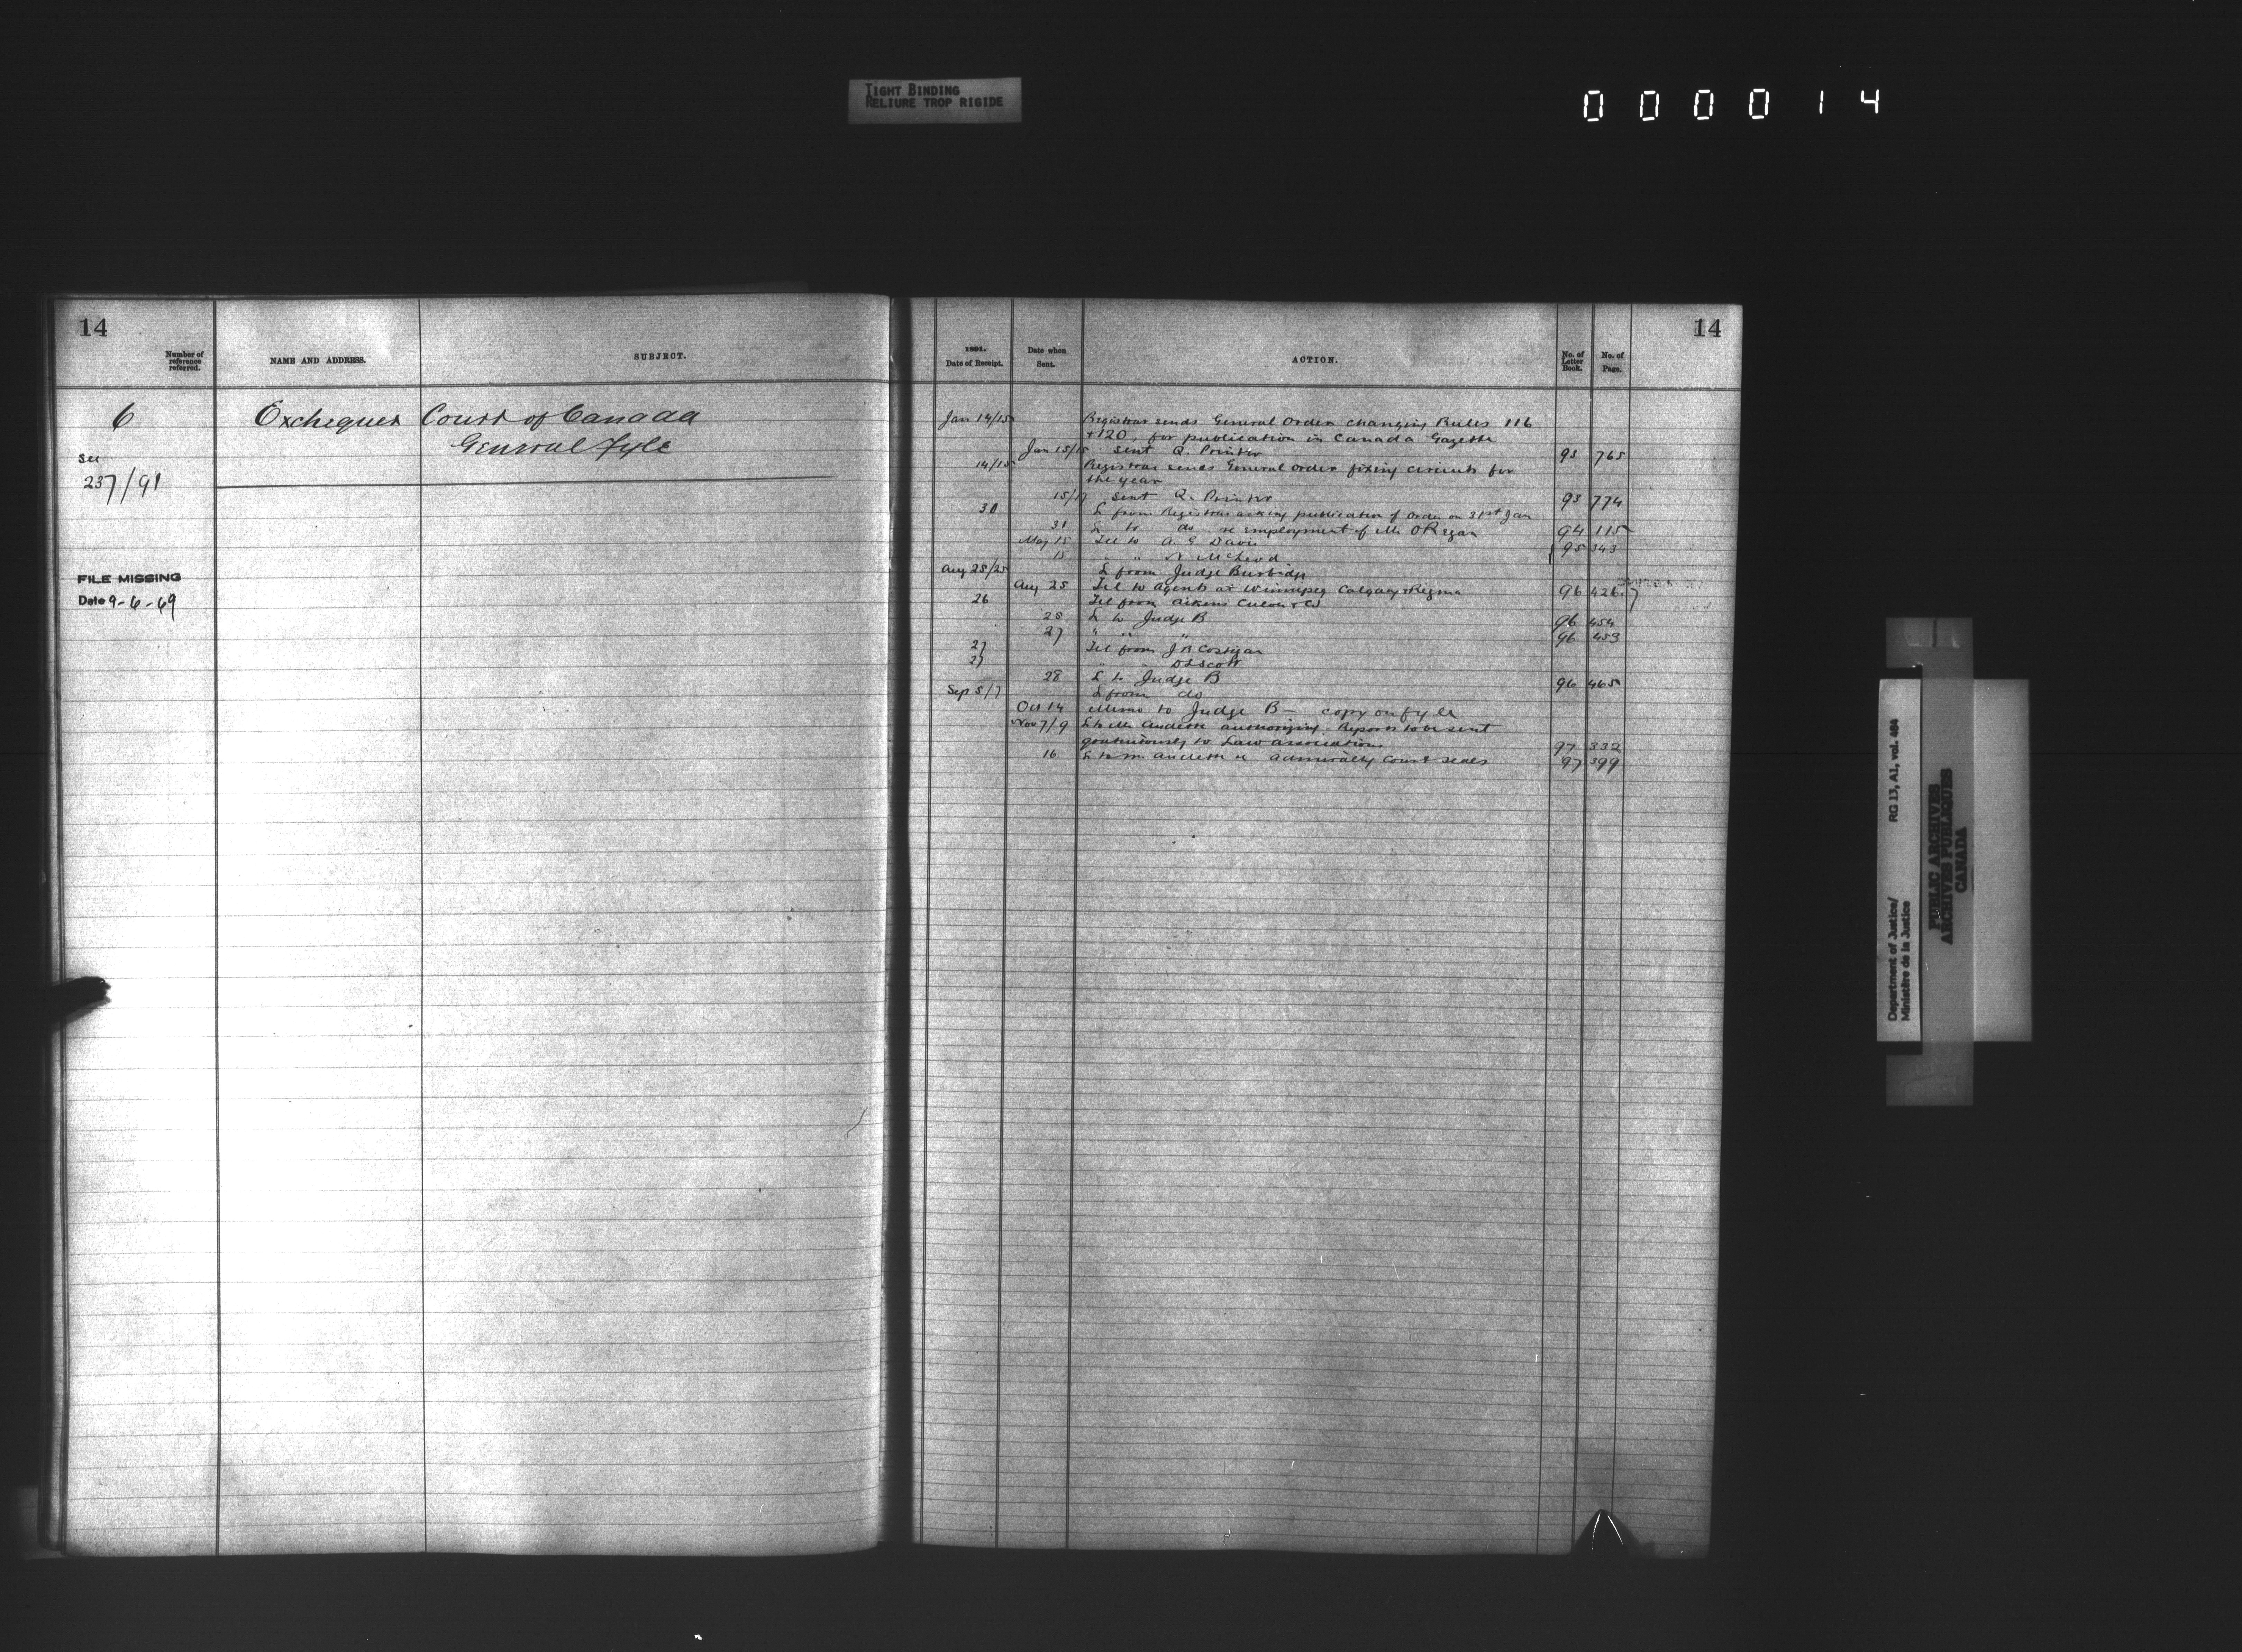 TIGHT BINDING
RELIURE TROP RIGIDE
000014
14
Number of
reference
referred.
NAME AND ADDRESS.
SUBJECT.
6
Exchequer Court of Canada
General Fyle
See
237/91
FILE MISSING
Date 9-6-69
14
1891.
Date of Receipt.
Date when
Sent.
ACTION.
No. of
Letter
Book.
No. of
Page.
Jan 14/15 Registrar sends General Order changing Rules 116
+ 120, for publication in Canada Gazette
Jan 15/15 sent Q. Printer 93 765
14/15 Registrar sends General Order fixing circuits for
the year
15/17 sent Q. Printer 93 774
30 L from Registrar asking publication of Order on 31st Jan
31 L to do re employment of Mr O'Regan 94 115
May 15 Tel to A. E Davie
15 " " N McLeod 95 343
Aug 25/25 L from Judge Burbidge
Aug 25 Tel to Agents at Winnipeg Calgary & Regina 96 426
26 Tel from Aikens Culver & Co
25 L to Judge B 96 454
27 " " " 96 453
27 Tel from J R Costigan
27 " " D L Scott
28 L to Judge B 96 465
Sep 5/7 L from do
Oct 14 Memo to Judge B - copy on fyle
Nov 7/9 L to Mr Audette authorizing Reports to be sent
gratuitously to Law associations 97 332
16 L to Mr Audette re Admiralty Court seals 97 399
Department of Justice/
Ministère de la Justice
RG 13, A1, vol. 484
PUBLIC ARCHIVES
ARCHIVES PUBLIQUES
CANADA